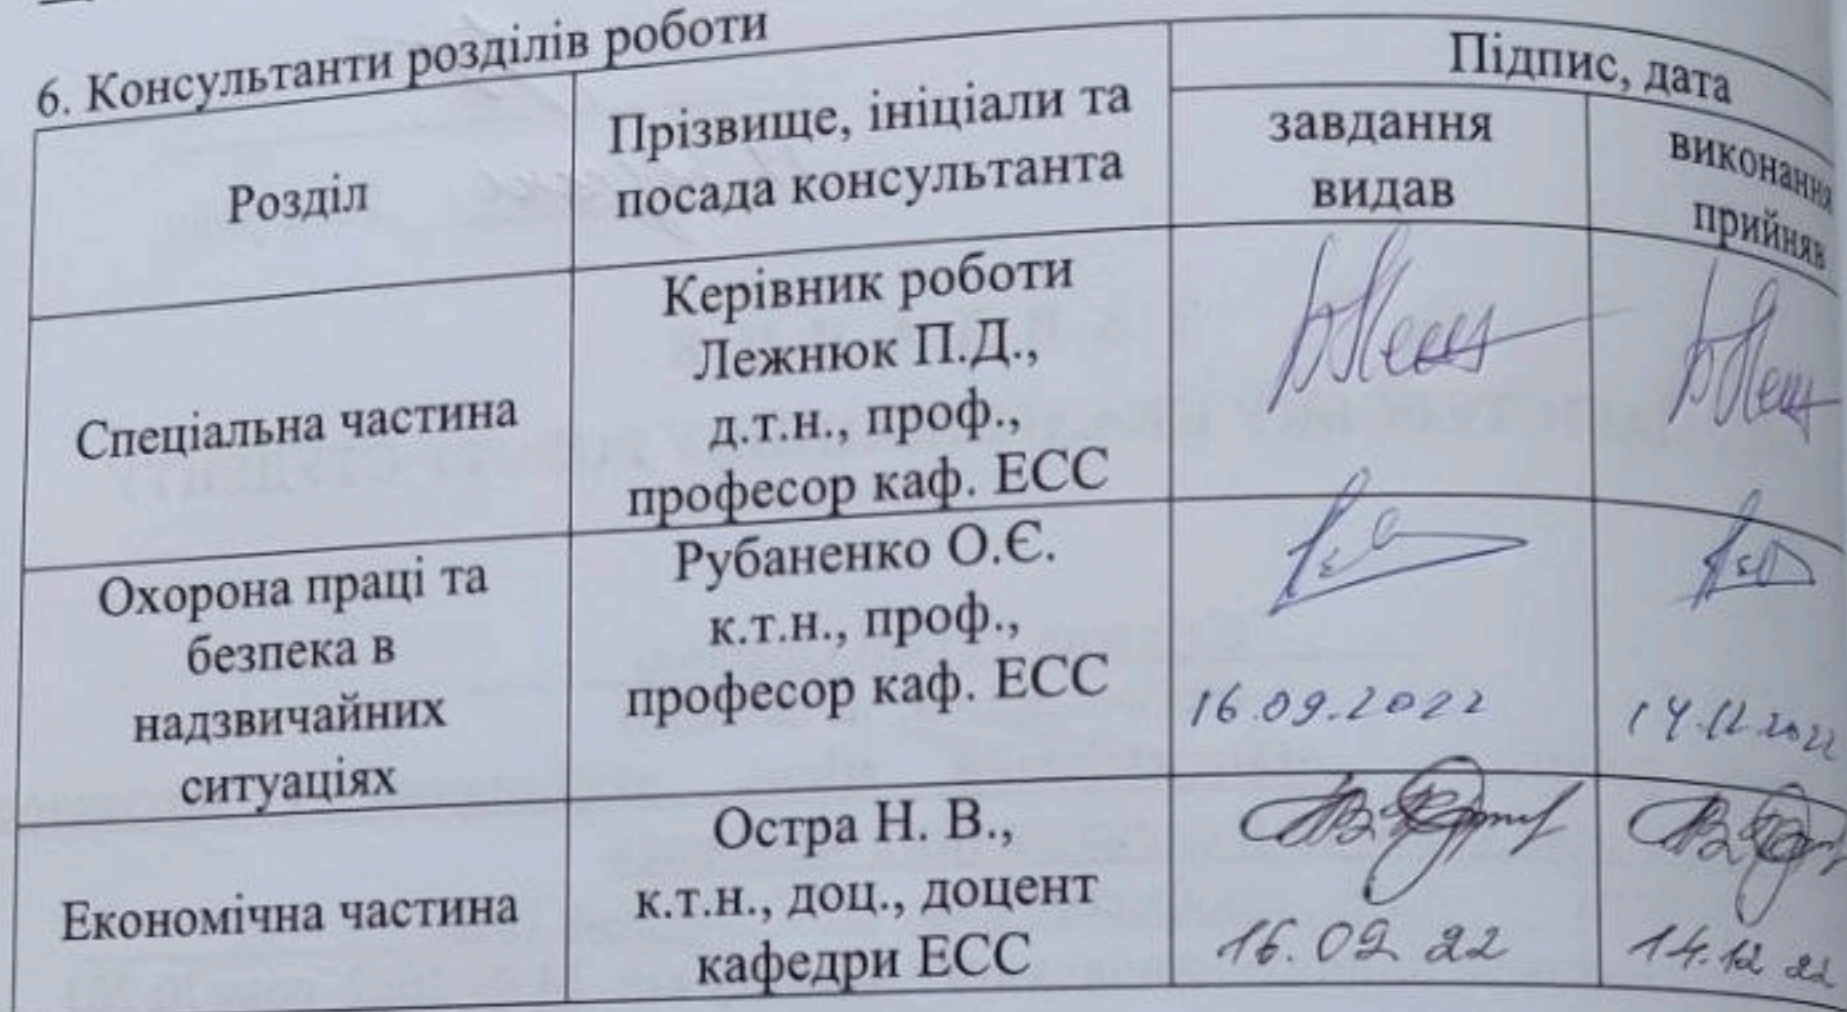 6. Консультанти розділів роботи
Розділ
Прізвище, ініціали та
посада консультанта
Підпис, дата
завдання
видав
виконання
прийняв
Спеціальна частина
Керівник роботи
Лежнюк П.Д.,
д.т.н., проф.,
професор каф. ЕСС
Охорона праці та
безпека в
надзвичайних
ситуаціях
Рубаненко О.Є.
к.т.н., проф.,
професор каф. ЕСС
16.09.2022
14.12.2022
Економічна частина
Остра Н. В.,
к.т.н., доц., доцент
кафедри ЕСС
16.09 22
14.12 22